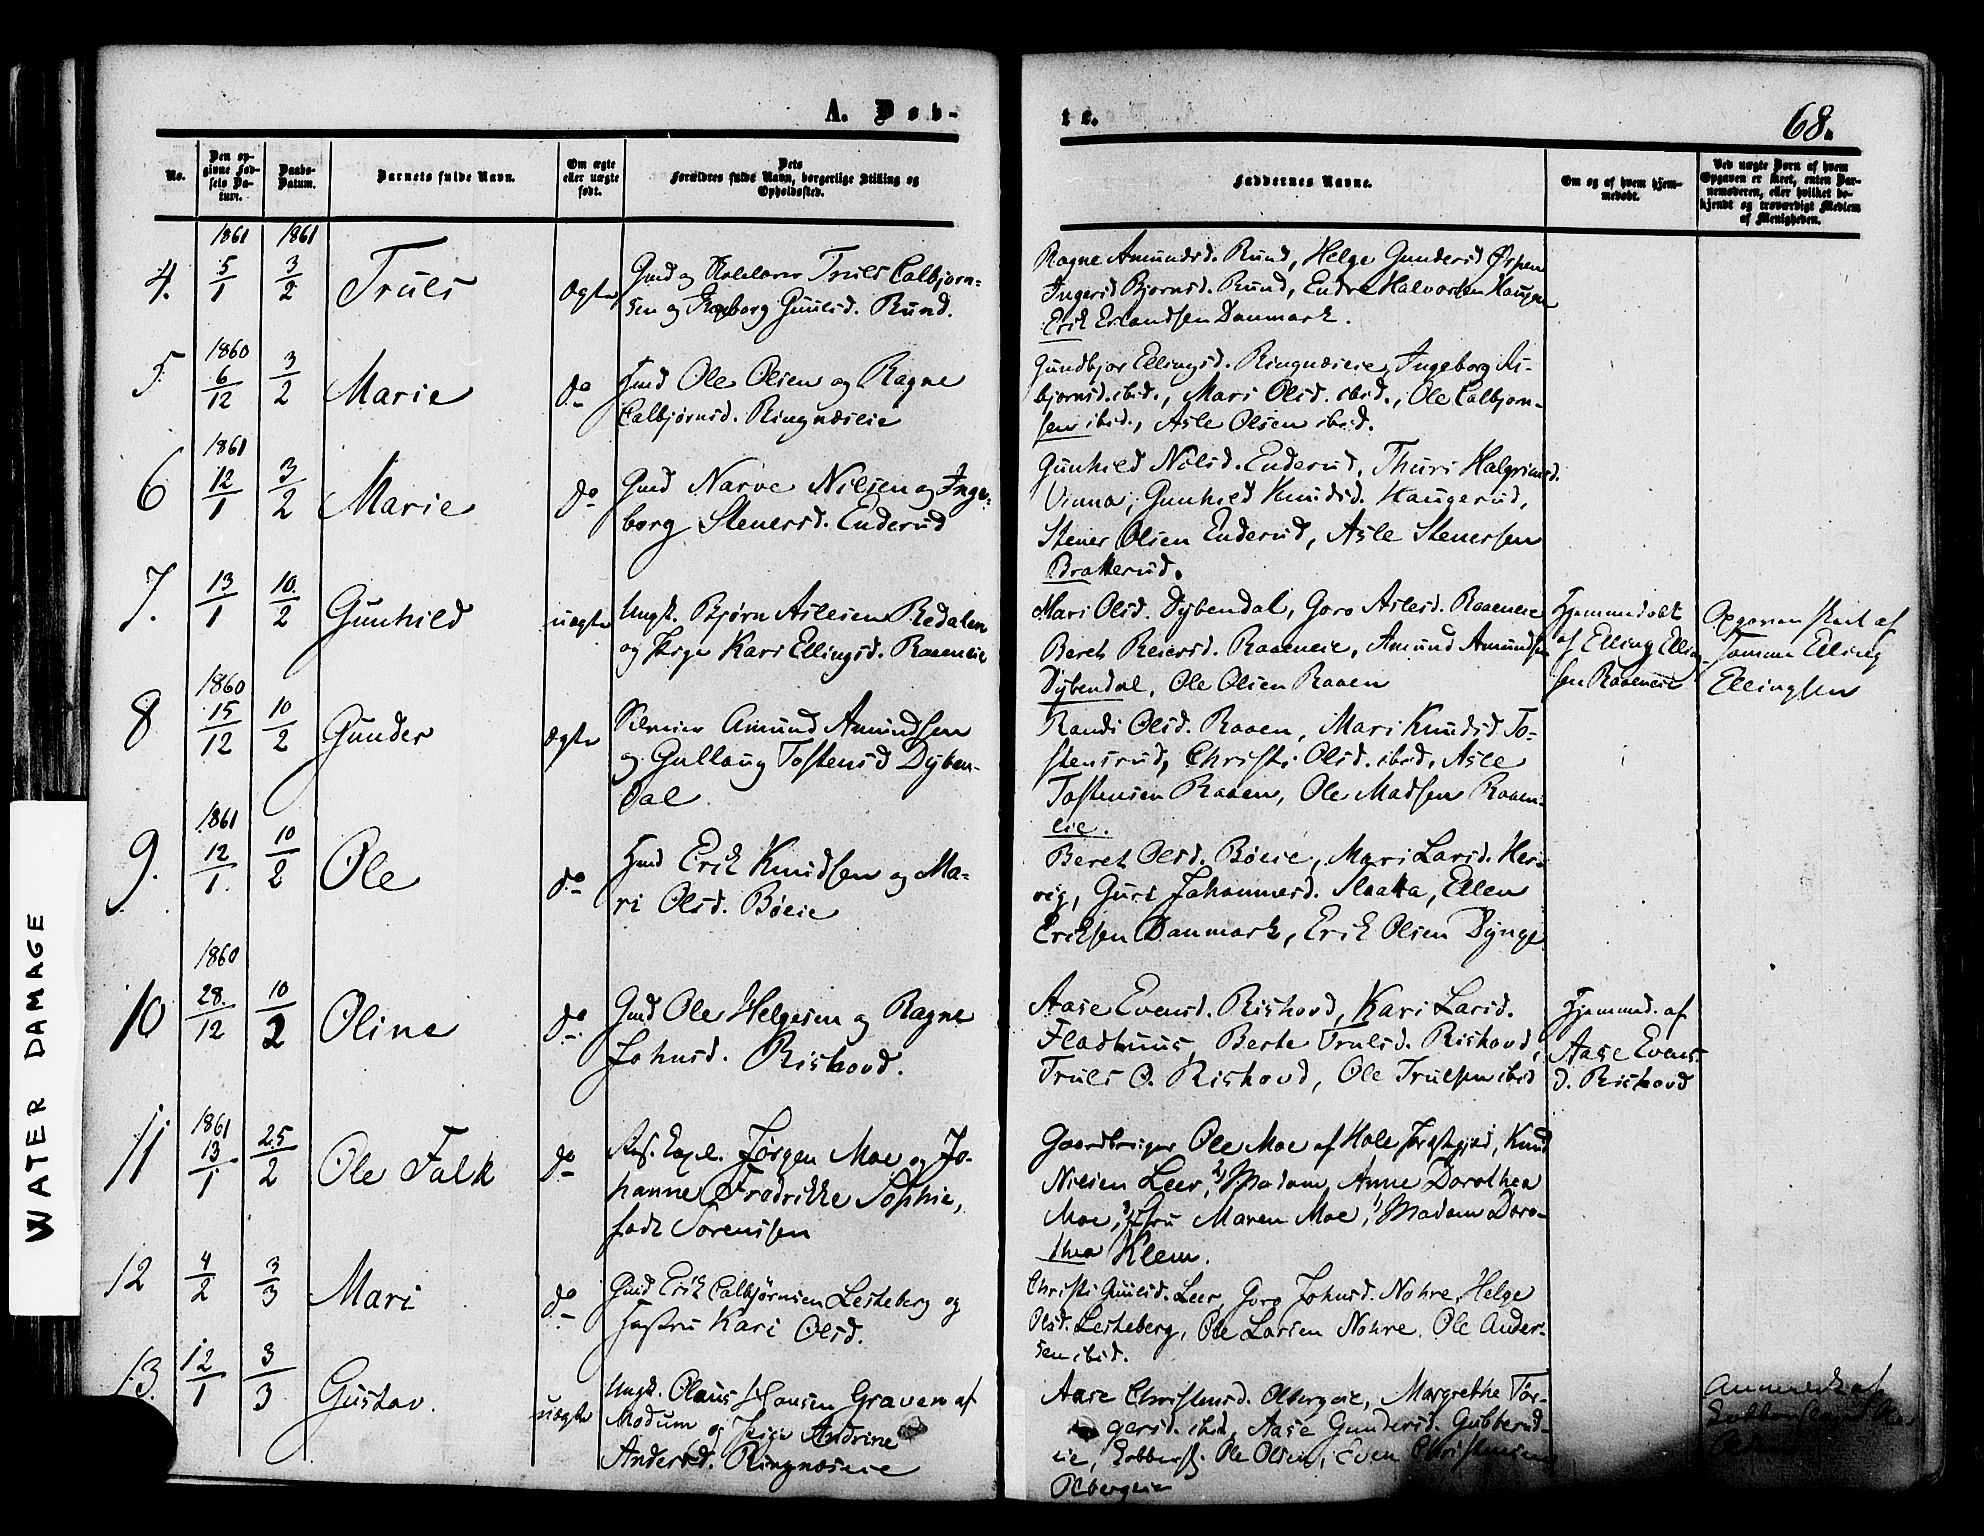 A. Døb-
te.
68.
No.
Den op-
givne Fød-
sels Da-
tum.
Daabs-
Datum.
Barnets fulde Navn.
Om ægte
eller uægte
født.
Dets
Forældres fulde Navn, borgerlige Stilling og
Opholdssted.
Faddernes Navne.
Om og af hvem hjem-
medøbt.
Ved uægte Børn af hvem
Opgaven er skeet, enten Bar-
nemoderen, eller hvilket be-
kjendt og troværdigt Medlem
af Menigheden.
1861 1861
4. 5/1 3/2 Truls ægte
Gmd og Truls Calbjørn-
sen og Ingeborg Guulsd. Rund.
Ragne Amundsd. Rund, Helge Gundersd Ørpen
Ingerid Bjornsd. Rund, Endre Halvorsen Haugen
Erik Erlandsen Danmark.
1860
5. 6/12 3/2 Marie do
Hmd Ole Olsen og Ragne
Calbjørnsd. Ringnæseie
Gundbjor Ellingsd. Ringnæseie, Ingeborg As-
bjornsd. ibid., Mari Olsd. ibid., Ole Calbjorn-
sen ibid., Asle Olsen ibid.
1861
6 12/1 3/2 Marie do
Gmd Narve Nilsen og Inge-
borg Stenersd. Enderud
Gunhild Nilsd. Enderud, Thuri Halgrimsd.
Vinna, Gunhild Knudsd. Haugerud,
Stener Olsen Enderud, Asle Stenersen
Brakkerud.
7. 13/1 10/2 Gunhild uægte
Ungk. Bjørn Aslesen Redalen
og Pige Kari Ellingsd. Raaeneie
Mari Olsd. Dybendal, Goro Aslesd. Raaeneie
Beret Reiersd. Raaeneie, Amund Amundsen
Dybendal, Ole Olsen Raaen
Hjemmedøbt
af Elling Elling-
sen Raaeneie
Opgaven skeet af
samme Elling
Ellingsen
1860
8 15/12 10/2 Gunder ægte
Amund Amundsen
og Gullaug Tostensd Dyben-
dal
Randi Olsd. Raaen, Mari Knudsd To-
stensrud, Christi Olsd. ibid. Asle
Tostensen Raaen, Ole Madsen Raaen-
eie.
1861
9. 12/1. 10/2 Ole do
Hmd Erik Knudsen og Ma-
ri Olsd. Bøeie
Beret Olsd. Bøeie, Mari Larsd. Her-
vig, Guri Johannesd. Slaatta, Ellen
Eriksen Danmark, Erik Olsen Dynge
1860
10 28./12 10/2 Oline do
Gmd Ole Helgesen og Ragne
Johnsd. Rishovd.
Aase Evensd. Rishovd, Kari Larsd.
Fladhuus, Berte Trulsd. Rishovd,
Truls O. Rishovd, Ole Trulsen ibid
Hjemmed. af
Aase Evens-
d. Rishovd
1861
11 13/1 25/2 Ole Falk do
Res. Capel. Jørgen Moe og Jo-
hanne Fredrikke Sophie,
født Sorenssen
Gaardbruger Ole Moe af Hole Præstegjed, Knud
Nilsen Leer, 2) Madam Anne Dorothea
Moe, 3) Fru Maren Moe, 1) Madam Doro-
thea Klem.
12 4/2 3/3 Mari do
Gmd Erik Calbjørnsen Lesteberg og
Hustru Kari Olsd.
Christi Guulsd. Leer, Goro Johnsd. Nohre, Helge
Olsd. Lesteberg, Ole Larsen Nohre, Ole Ander-
sen ibid.
13. 12/1 3/3 Gustav. uægte
Ungk. Olaus Hansen Graven af
Modum og Pige Andrine
Andersd. Ringnæseie
Aase Christensd. Olbergeie, Margrethe Tor-
gersd. ibid, Aase Gundersd. Gubberud-
eie, Ole Olsen, Even Christensen
Olbergeie
WATER DAMAGE